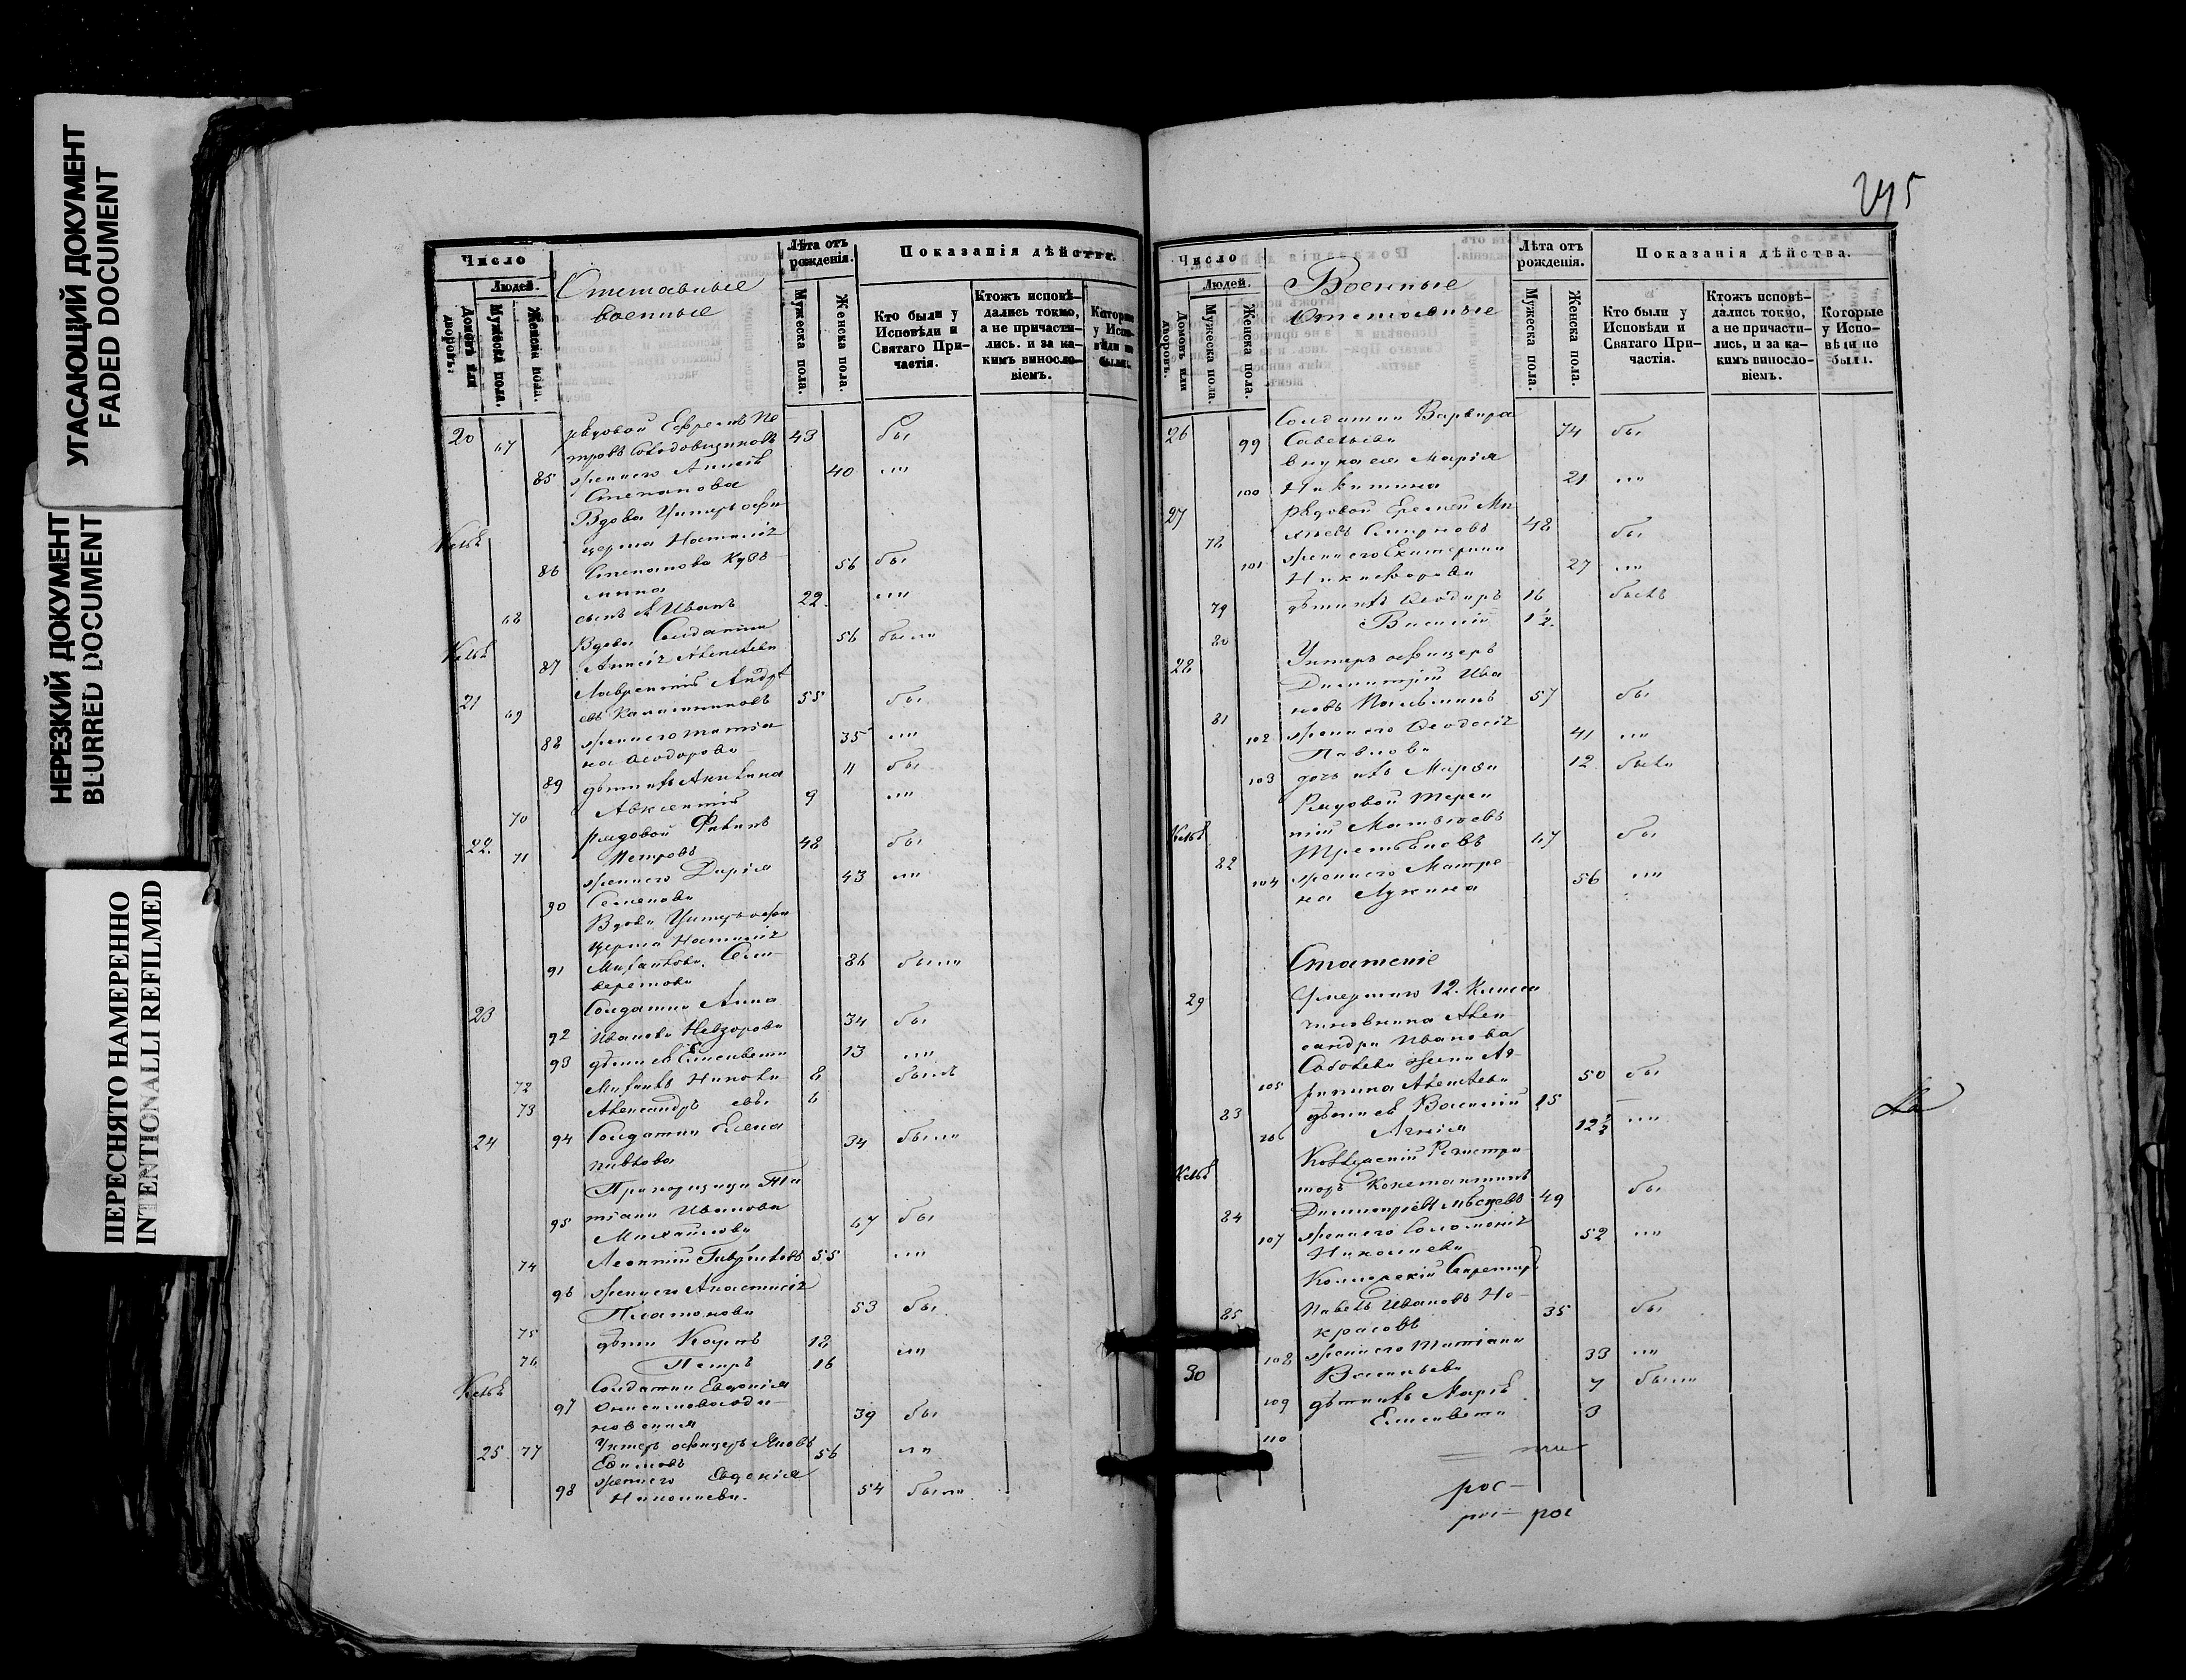 УГАСАЮЩИЙ ДОКУМЕНТ
FADED DOCUMENT
НЕРЕЗКИЙ ДОКУМЕНТ
BLURRED DOCUMENT
ПЕРЕСНЯТО НАМЕРЕННО
INTENTIONALLI REFILMED
Число
Людей.
Домовъ или дворовъ.
Мужеска пола.
Женска пола.
Отставные
военные
Лѣта отъ рожденія.
Мужеска пола.
Женска пола.
Показанія дѣйства.
Кто были у Исповѣди и Святаго Причастія.
Ктожъ исповѣдались токмо, а не причастились. и за какимъ винословіемъ.
Которые у Исповѣди не были.
20 67 рядовой Ефремъ Пе
тровъ 43 бы
85 жена его Анисія 40 "
Степанова
Вдова Унтеръ офи
церша Наталія
86 Степанова Кузь 56 бы
мина
68 сынъ ея Иванъ 22 "
Вдова Солдатка 56 были
87 Анисія Алексѣева
21 Лаврентій Андре
69 евъ Калашниковъ 55 бы
88 жена его Татія 35 "
на Ѳеодорова
89 дѣти ихъ Акилина 11 бы
70 Авксентій 9 "
22 рядовой Филипъ
71 Петровъ 48 бы
жена его Дарія 43 "
90 Семенова
Вдова Унтеръ офи
церша Наталія
91 Михайлова 86 были
23 Солдатка Анна
92 Иванова Невзорова 34 бы
93 дѣти ея Елисавета 13 "
72 Михаилъ 8 былъ
73 Александръ 6
24 94 Солдатка Елена 34 были
Павлова
Прапорщица Та
95 тіана Иванова 67 бы
Михайлова
74 Леонтій Гавриловъ 55 "
96 жена его Анастасія
Платонова 53 бы
75 дѣти Карпъ 18
76 Петръ 16 "
Солдатка Евдокія
97 39 бы
25 77 Унтеръ офицеръ Яковъ 56 "
Ефимовъ
98 жена его Евдокія 54 были
Николаева.
245
Число
Людей.
Домовъ или дворовъ.
Мужеска пола.
Женска пола.
Военные
Отставные
Лѣта отъ рожденія.
Мужеска пола.
Женска пола.
Показанія дѣйства.
Кто были у Исповѣди и Святаго Причастія.
Ктожъ исповѣдались токмо, а не причастились, и за какимъ винословіемъ.
Которые у Исповѣди не были.
26 Солдатка Варвара
99 Савельева 74 бы
внука ея Марія
100 Никитина 21 "
27 рядовой Еремей Ми
78 Смирновъ 48 бы
101 жена его Екатерина 27 "
Никифорова
79 дѣти ихъ Ѳеодоръ 16 былъ
80 Василій 1½
28 Унтеръ офицеръ
Димитрій Ива
81 новъ 57 бы
102 жена его Ѳеодосія 41 "
Павлова
103 дочь ихъ Марѳа 12 была
Рядовой Терен
тій Матвѣевъ
82 47 бы
104 жена его Матре 56 "
на Лукина
Статскіе
29 Умершаго 12. класса
чиновника Алек
сандра Иванова
Соболева жена
105 Алексѣева 50 бы
83 дѣти ея Василій 15
106 Агнія 12½ "
Коллежскій Регистра
торъ Константинъ бы
84 Димитріевъ 49
107 жена его Соломонія 52 "
Николаева
Коллежскій Секретарь
85 Павелъ Ивановъ Не 35 бы
красовъ
30 108 жена его Татіана 33 "
Васильева
109 дѣти ихъ Марія 7 были
110 Елисавета 3
рос
рос рос